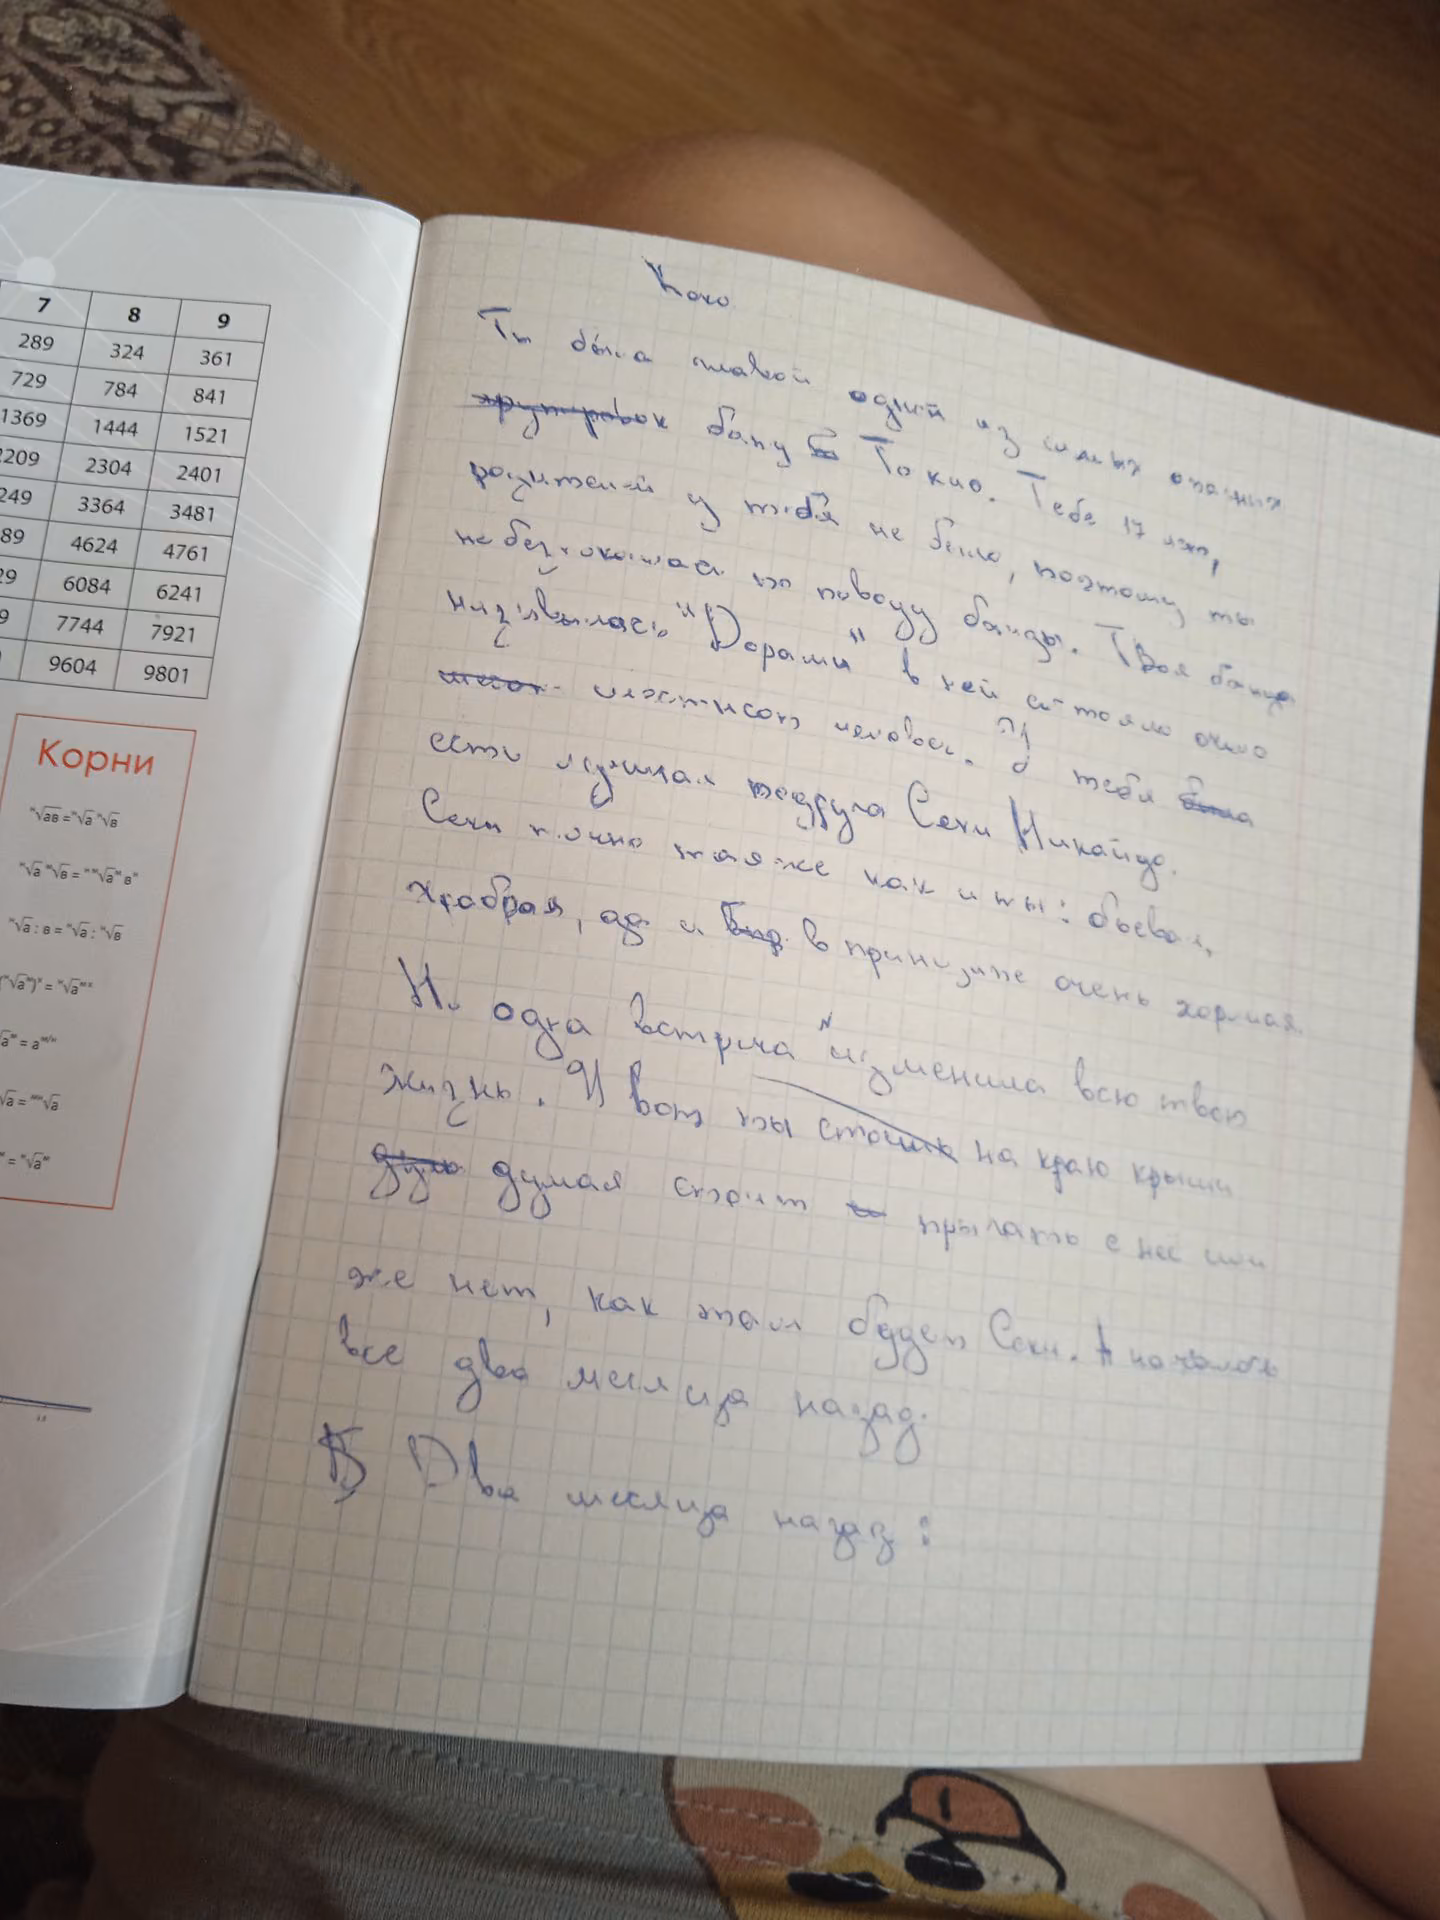 7 8 9
289 324 361
729 784 841
1369 1444 1521
2209 2304 2401
249 3364 3481
89 4624 4761
29 6084 6241
9 7744 7921
9604 9801
Корни
ⁿ√ав = ⁿ√а ⁿ√в
ⁿ√а : в = ⁿ√а : ⁿ√в
Коко
Ты была главой одной из самых опасных
банд Токио. Тебе 17 лет,
родителей у тебя не было, поэтому ты
не безпокоилась по поводу банды. Твоя банда
называлась "Дорами" в ней состояло около
шестисот человек. У тебя
есть лучшая подруга Секи Никайдо.
Секи точно такая же как и ты: боевая,
храбрая, и в принципе очень хорошая.
Но одна встреча изменила всю твою
жизнь. И вот ты стоишь на краю крыши
думая стоит прыгать с неё или
же нет, как там будет Секи. А началось
все два месяца назад.
Два месяца назад: